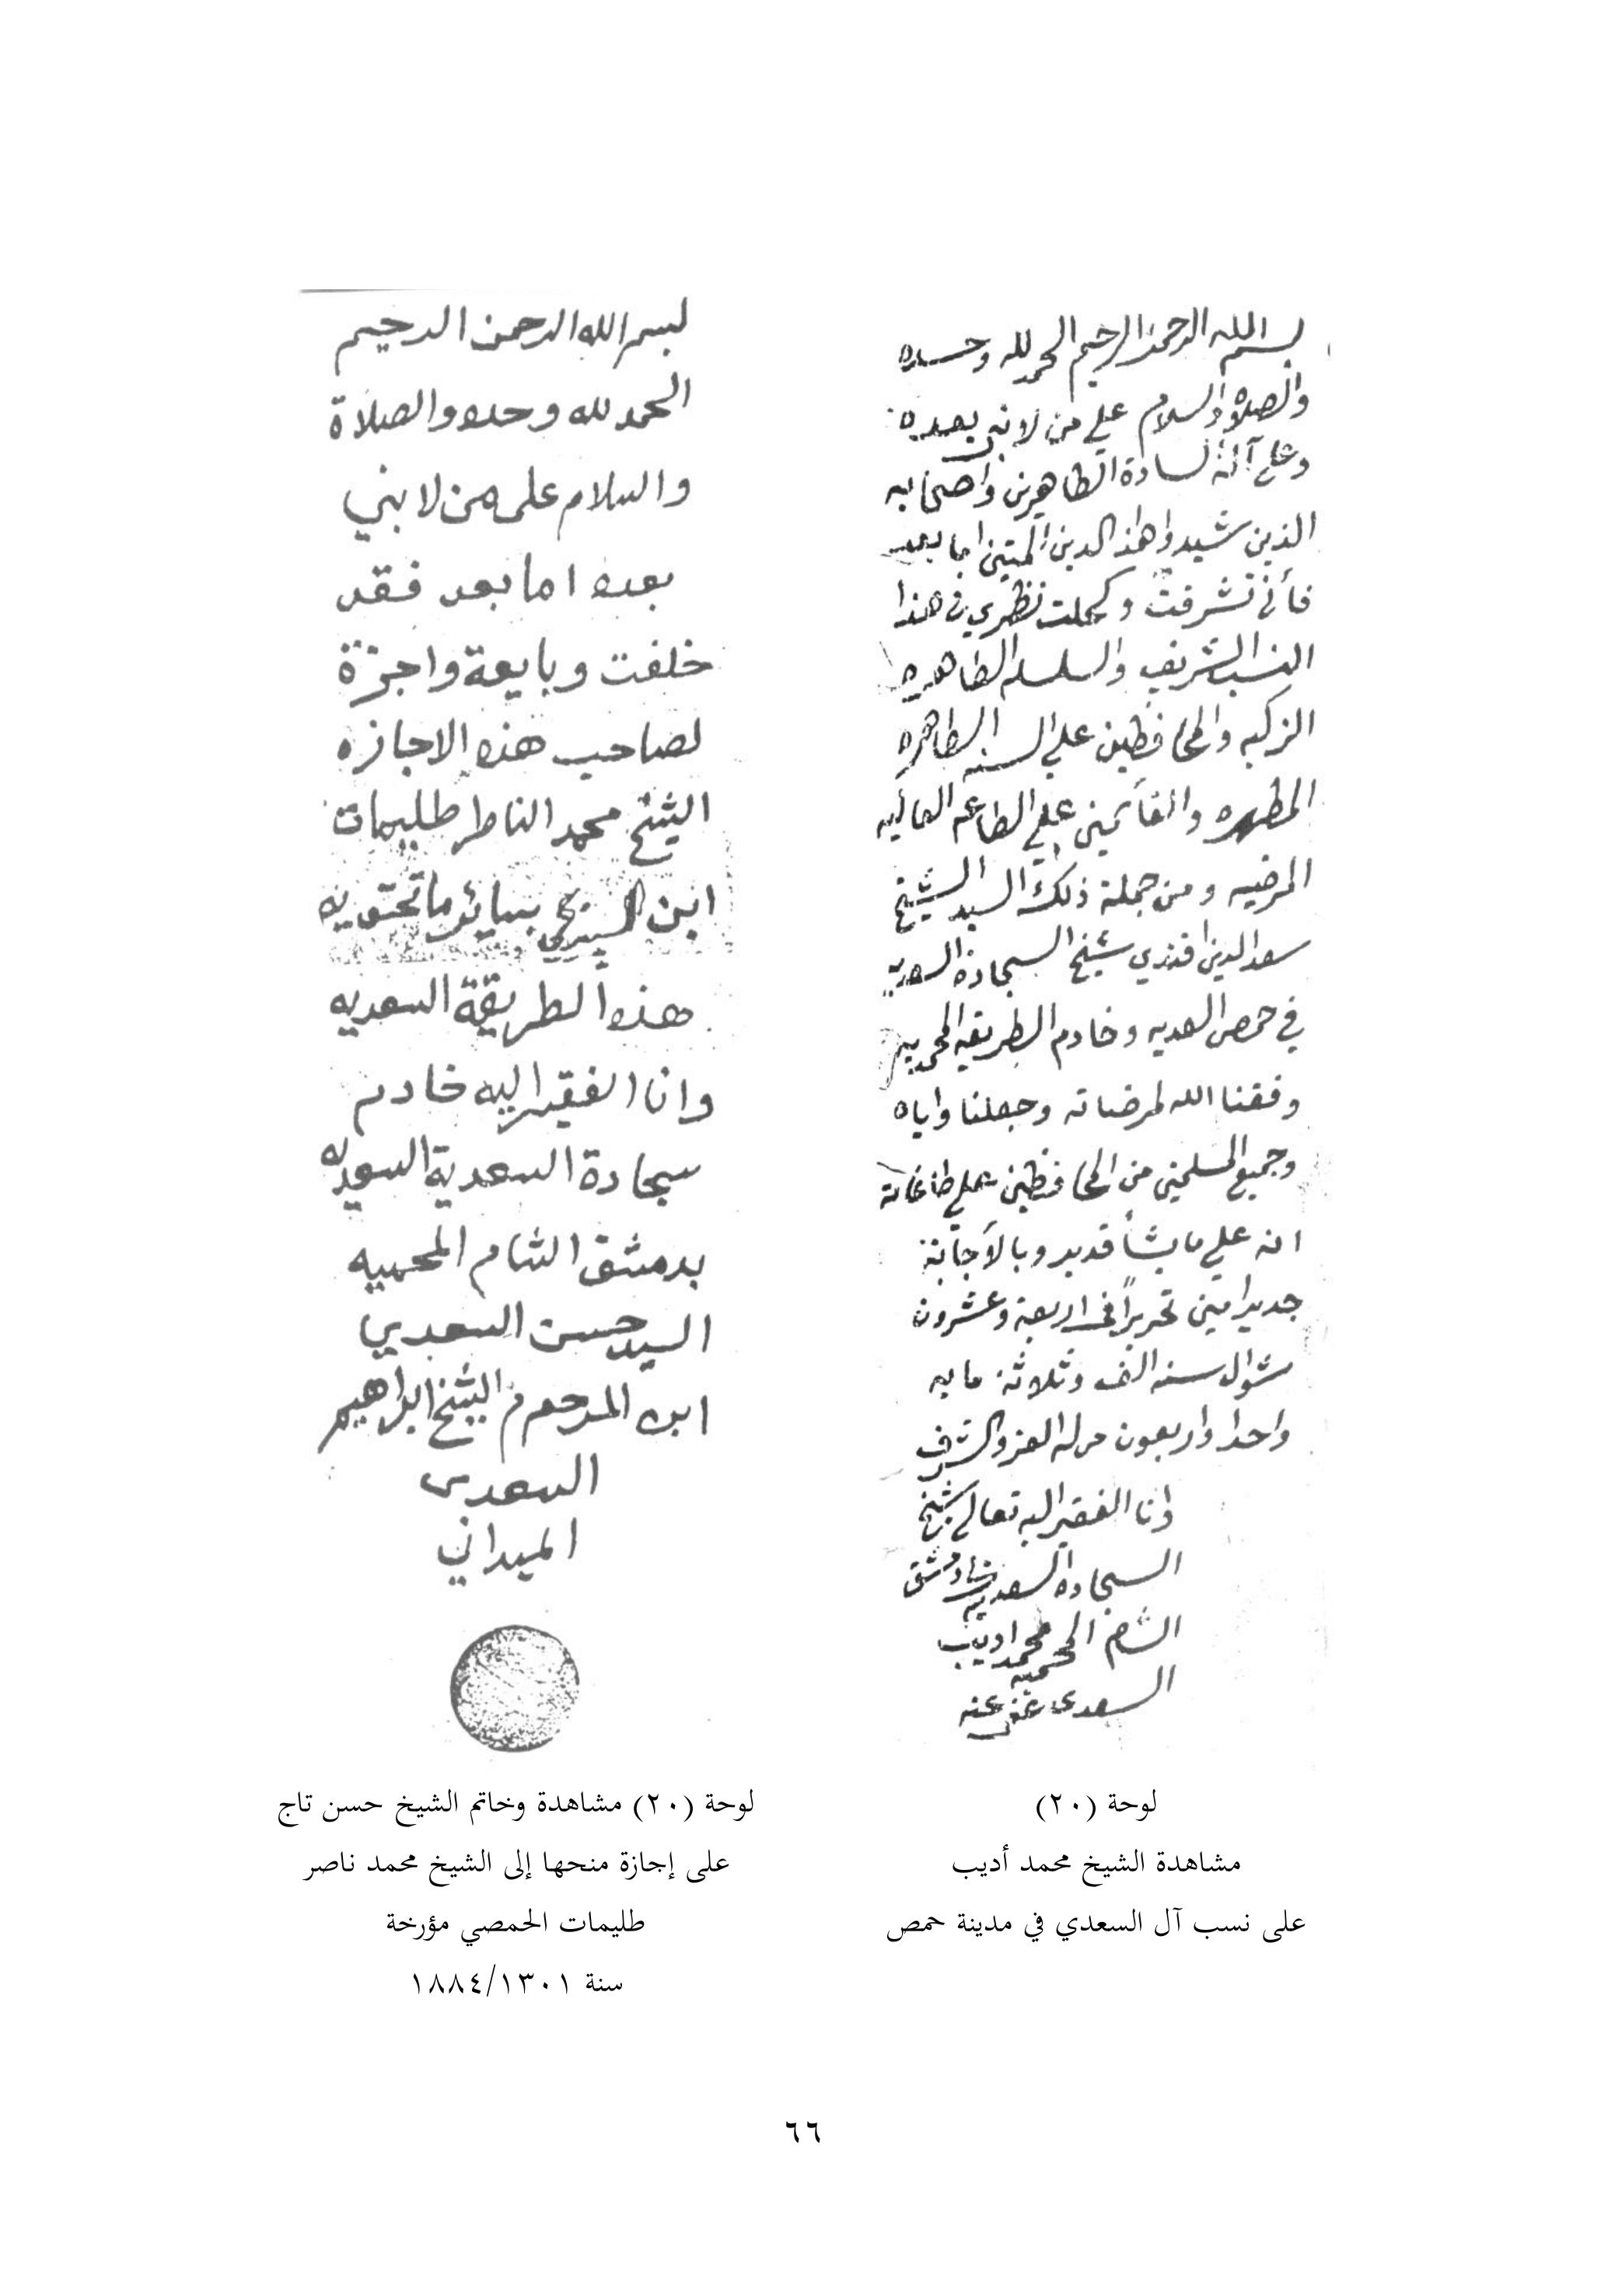 بسم الله الرحمن الرحيم الحمد لله وحده
والصلاة والسلام علي من لا نبي بعده
وعلي آله السادة الطاهرين واصحابه
الذين شيدوا هذا الدين المتين اما بعد
فأني تشرفت وكحلت نظري في هذا
النسب الشريف والسلسله الطاهره
الزكيه والمحافظين علي السنه الطاهره
المطهره والقأئمين علي الطاعه
المرضيه ومن جملة ذلك السيد الشيخ
سعد الدين افندي شيخ السجادة السعديه
في حمص العديه وخادم الطريقه المحمديه
وفقنا الله لمرضاته وجعلنا واياه
وجميع المسلمين من المحافظين علي طاعاته
انه علي ما يشأ قدير وبالأجابة
جدير امين تحريراً في اربعة وعشرون
شوال سنه الف وثلاثة مايه
واحدا واربعون من له العز والشرف
وانا الفقير اليه تعالى شيخ
السجاده السعديه دمشق
الشام المحميه محمد اديب
السعدي عفي عنه
لوحة (٢٠)
مشاهدة الشيخ محمد أديب
على نسب آل السعدي في مدينة حمص
بسم الله الرحمن الرحيم
الحمد لله وحده والصلاة
والسلام على من لا نبي
بعده اما بعد فقد
خلفت وبايعة واجزة
لصاحب هذه الاجازه
الشيخ محمد الناصر طليمات
ابن بسائر ما تحتويه
هذه الطريقة السعديه
وانا الفقير اليه خادم
سجادة السعدية السعديه
بدمشق الشام المحميه
السيد حسن السعدي
ابن المرحوم الشيخ ابراهيم
السعدي
الميداني
لوحة (٢٠) مشاهدة وخاتم الشيخ حسن تاج
على إجازة منحها إلى الشيخ محمد ناصر
طليمات الحمصي مؤرخة
سنة ١٨٨٤/١٣٠١
٦٦